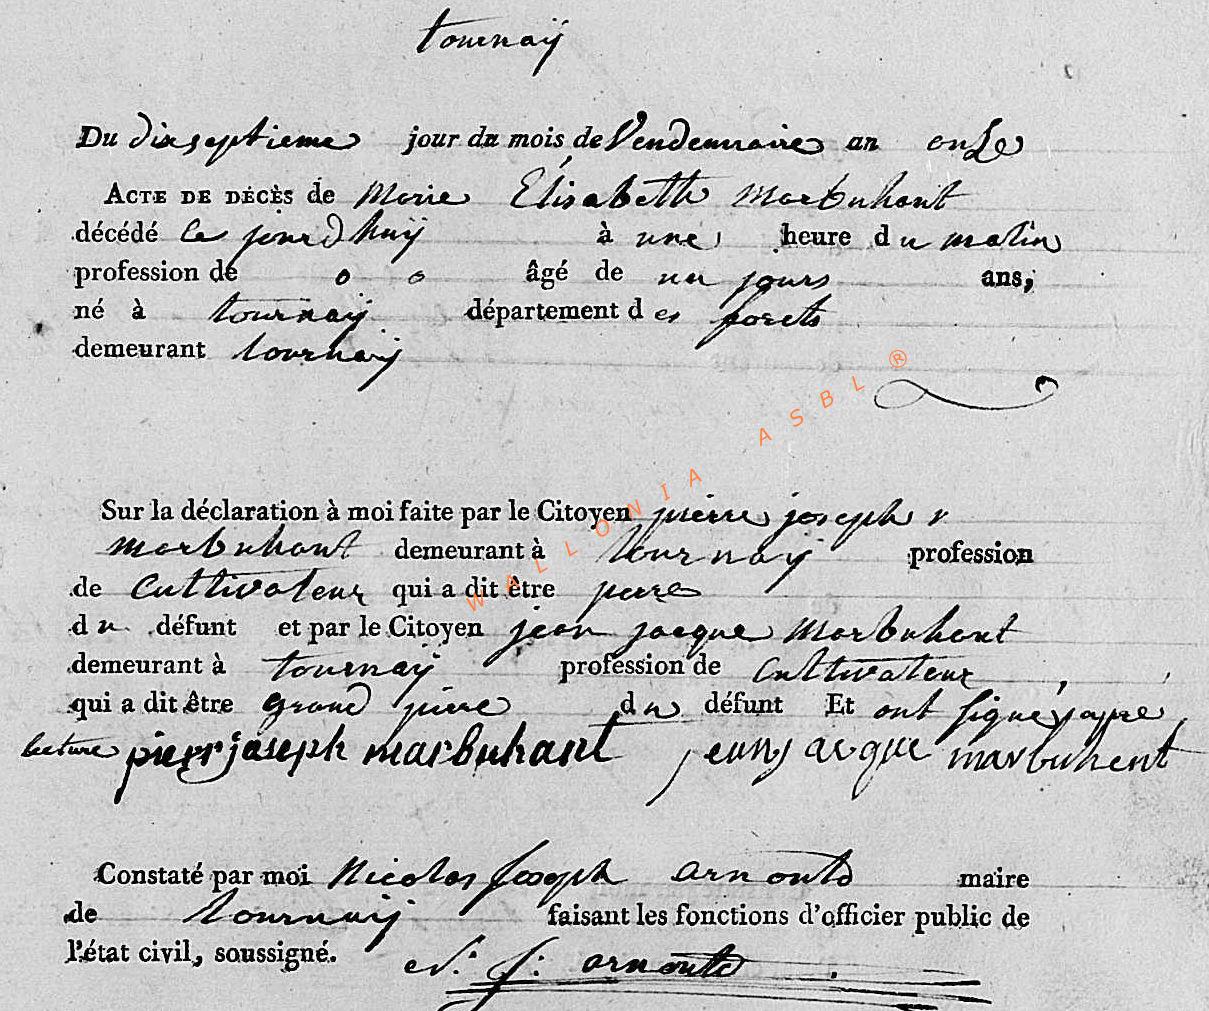 tournaÿ
Du dixseptieme jour du mois de Vendemiaire an onze
ACTE DE DÉCÈS de Marie Elisabeth marbuhant
décédé ce jourdhuÿ à une heure du matin
profession de o o âgé de un jours ans,
né à tournaÿ département des forets
demeurant tournaÿ
Sur la déclaration à moi faite par le Citoyen pierre joseph
marbuhant demeurant à tournaÿ profession
de Cultivateur qui a dit être pere
du défunt et par le Citoyen jean jacque marbuhant
demeurant à tournaÿ profession de Cultivateur
qui a dit être grand piere du défunt Et ont signe apre
lecture pierr joseph marbuhant jean jacque marbuhent
Constaté par moi Nicolas Joseph arnould maire
de tournaÿ faisant les fonctions d'officier public de
l'état civil, soussigné. N. J. arnould
WALLONIA ASBL ®